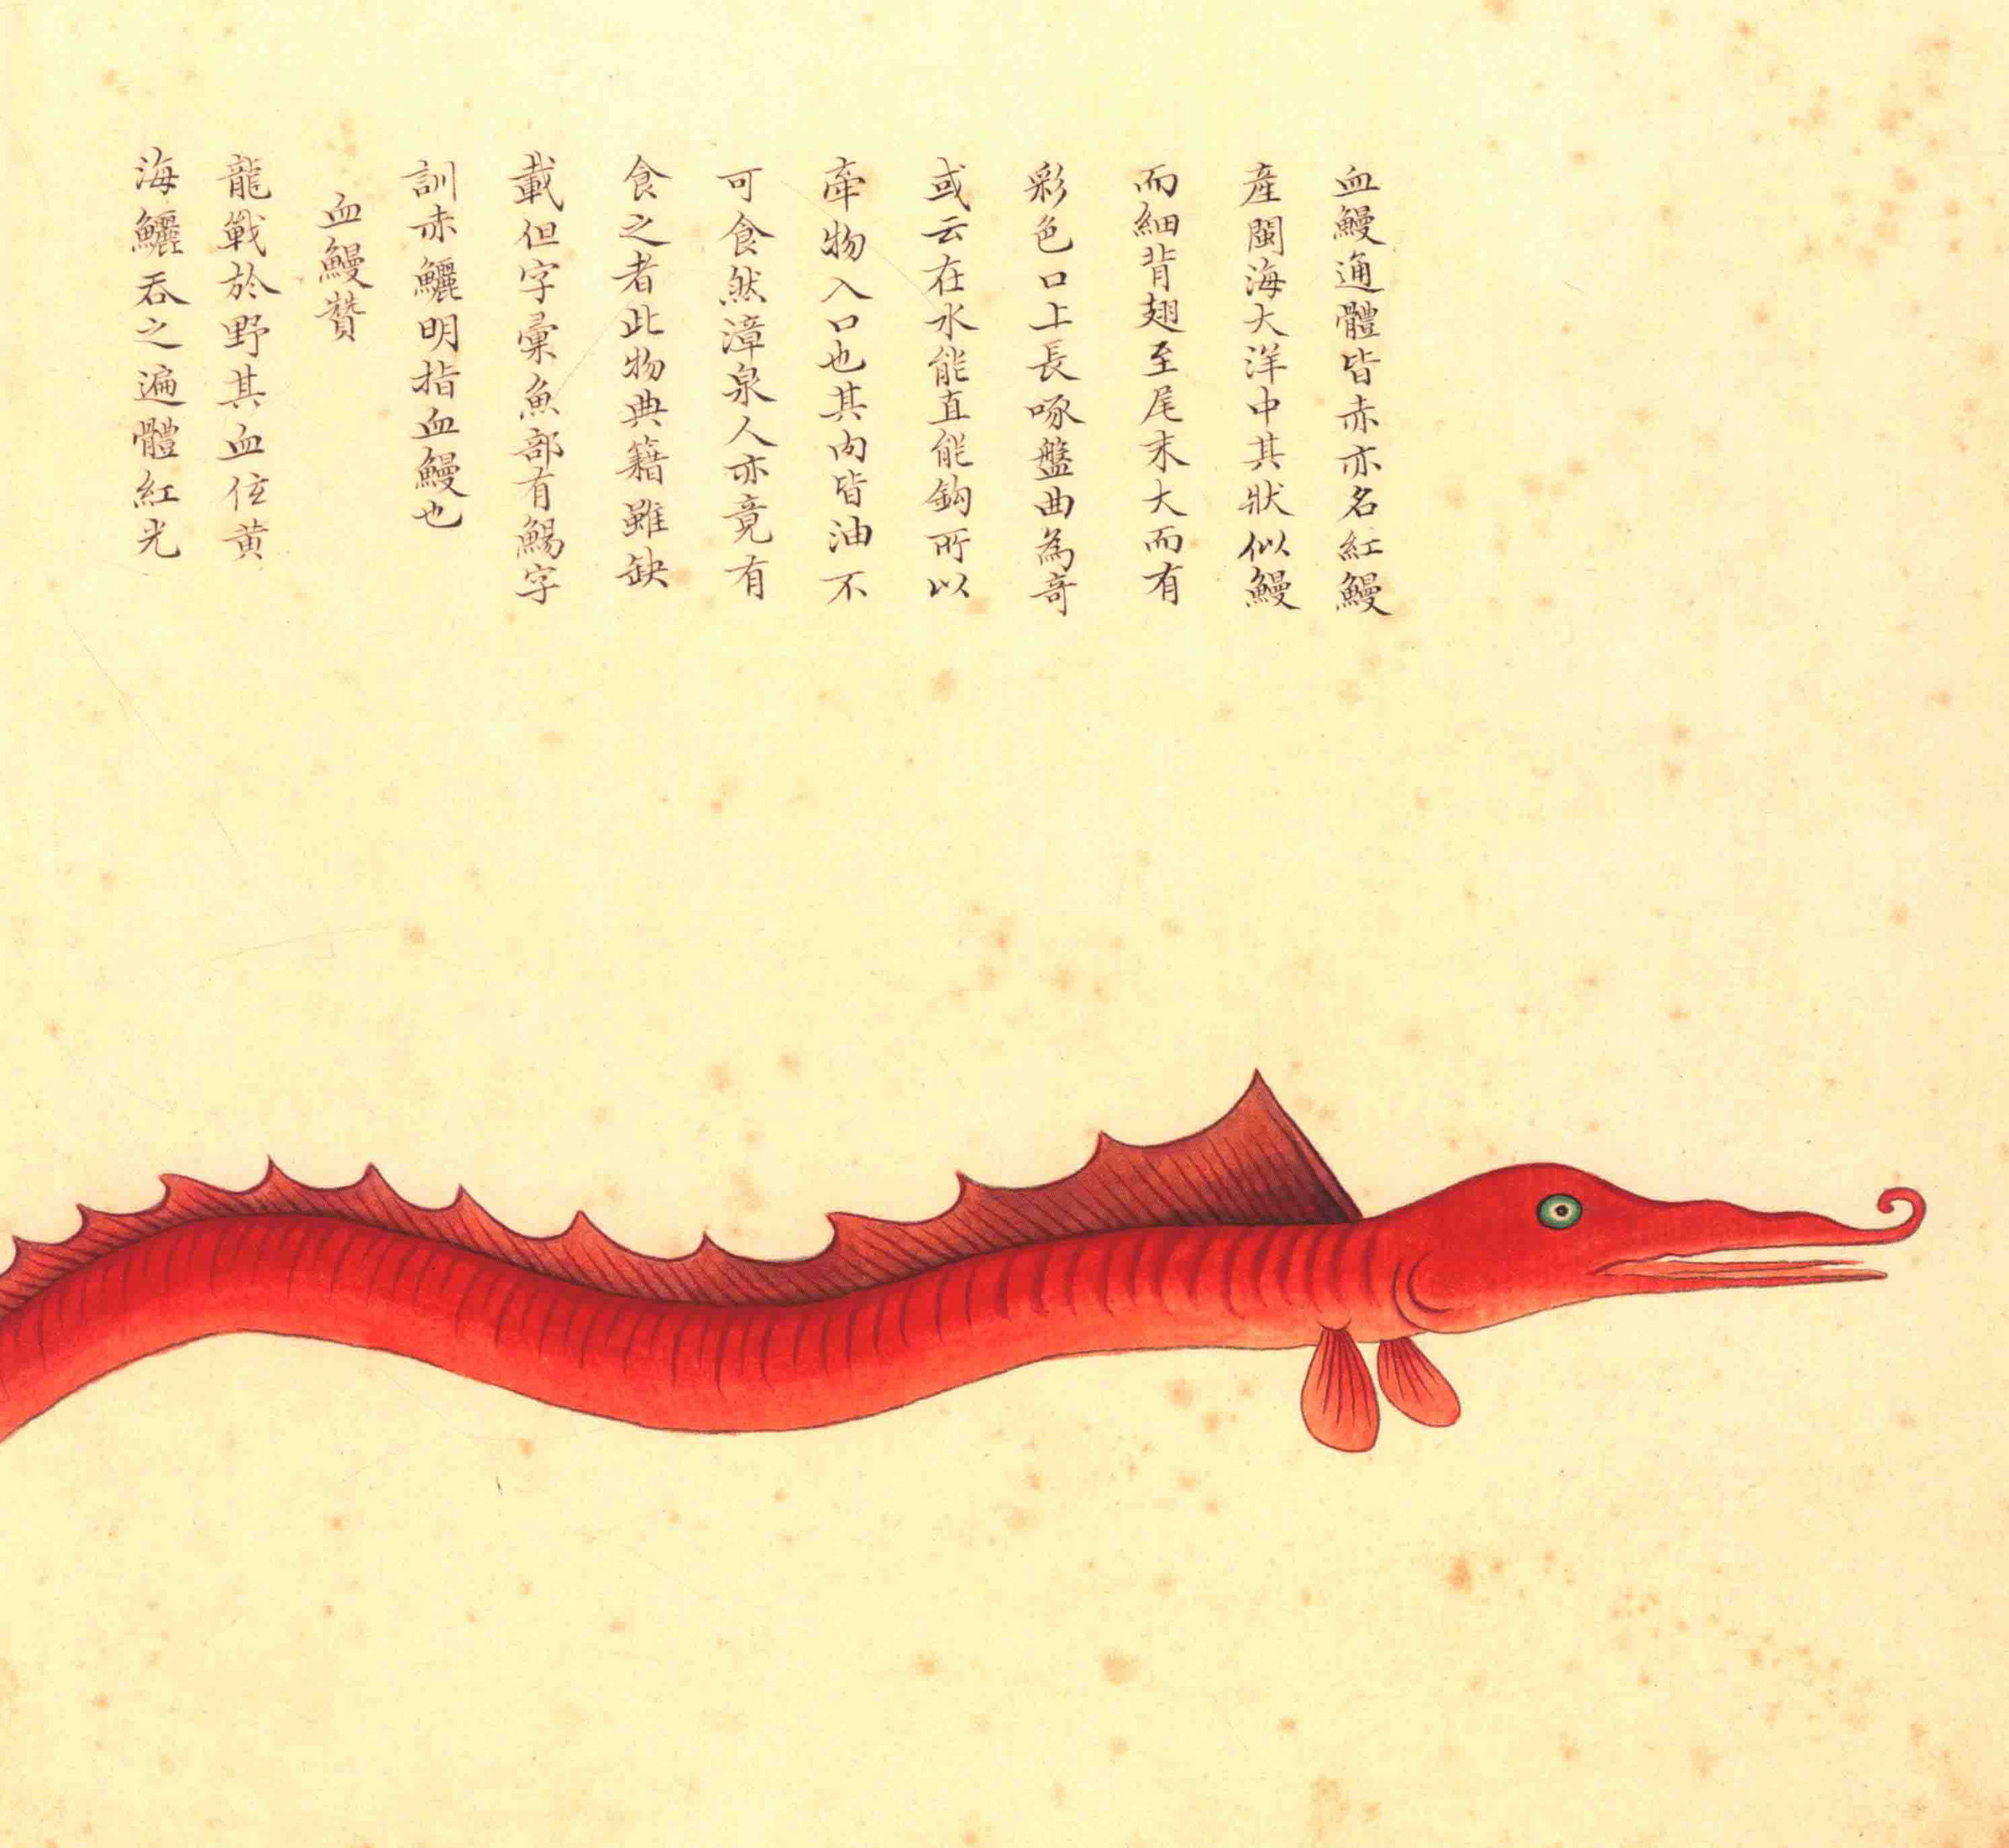 血鰻通體皆赤亦名紅鰻
產閩海大洋中其狀似鰻
而細背翅至尾末大而有
彩色口上長啄盤曲為奇
或云在水能直能鈎所以
牽物入口也其肉皆油不
可食然漳泉人亦竟有
食之者此物典籍雖缺
載但字彙魚部有鰑字
訓赤鱺明指血鰻也
血鰻贊
龍戰於野其血位黃
海鱺吞之遍體紅光